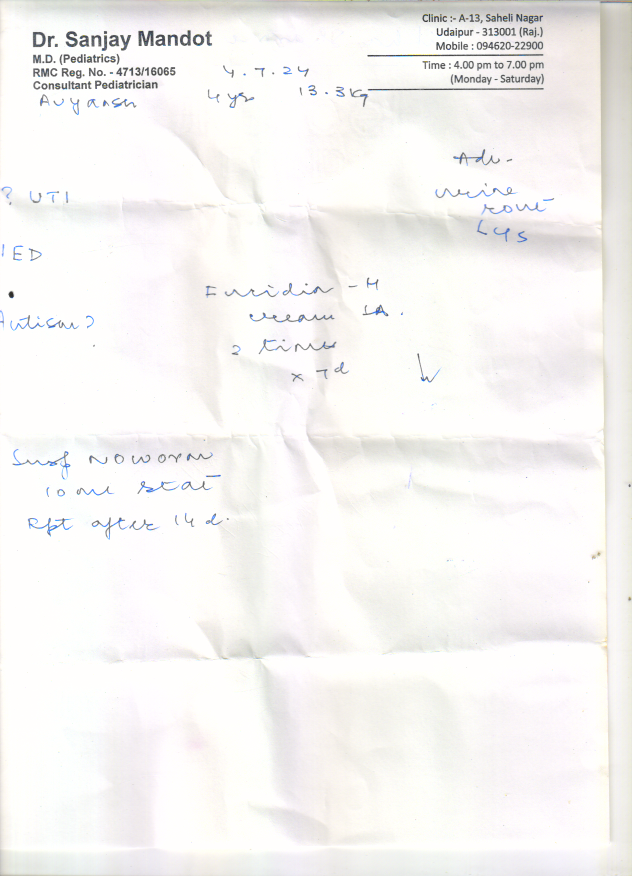 Dr. Sanjay Mandot
M.D. (Pediatrics)
RMC Reg. No. - 4713/16065
Consultant Pediatrician
Clinic :- A-13, Saheli Nagar
Udaipur - 313001 (Raj.)
Mobile : 094620-22900
Time : 4.00 pm to 7.00 pm
(Monday - Saturday)
4.7.24
Avyansh 4 yrs 13.3kg
Adv-
urine
? UTI
IED
Autism?
cream LA.
2 times
x 7d
Susp NOWORM
10 ml stat
Rpt after 14 d.